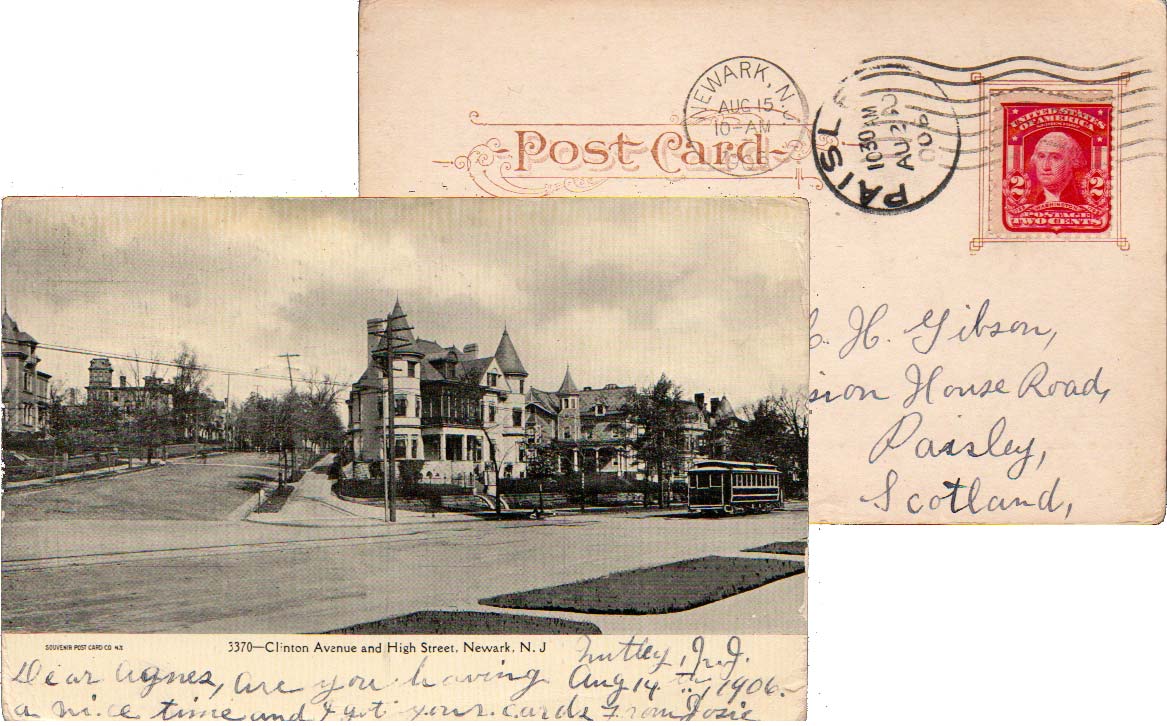 NEWARK, N.J.
AUG 15
10-AM
Post Card
PAISL
1030 AM
AU 2
UNITED STATES
OF AMERICA
2 2
WASHINGTON
POSTAGE
TWO CENTS
H. Gibson,
sion House Road,
Passley,
Scotland,
SOUVENIR POST CARD CO. N.Y.
3370—Clinton Avenue and High Street, Newark, N. J
Nutley, N.J.
Aug 14th, 1906.
Dear Agnes, are you having
a nice time and I got your cards from Josie